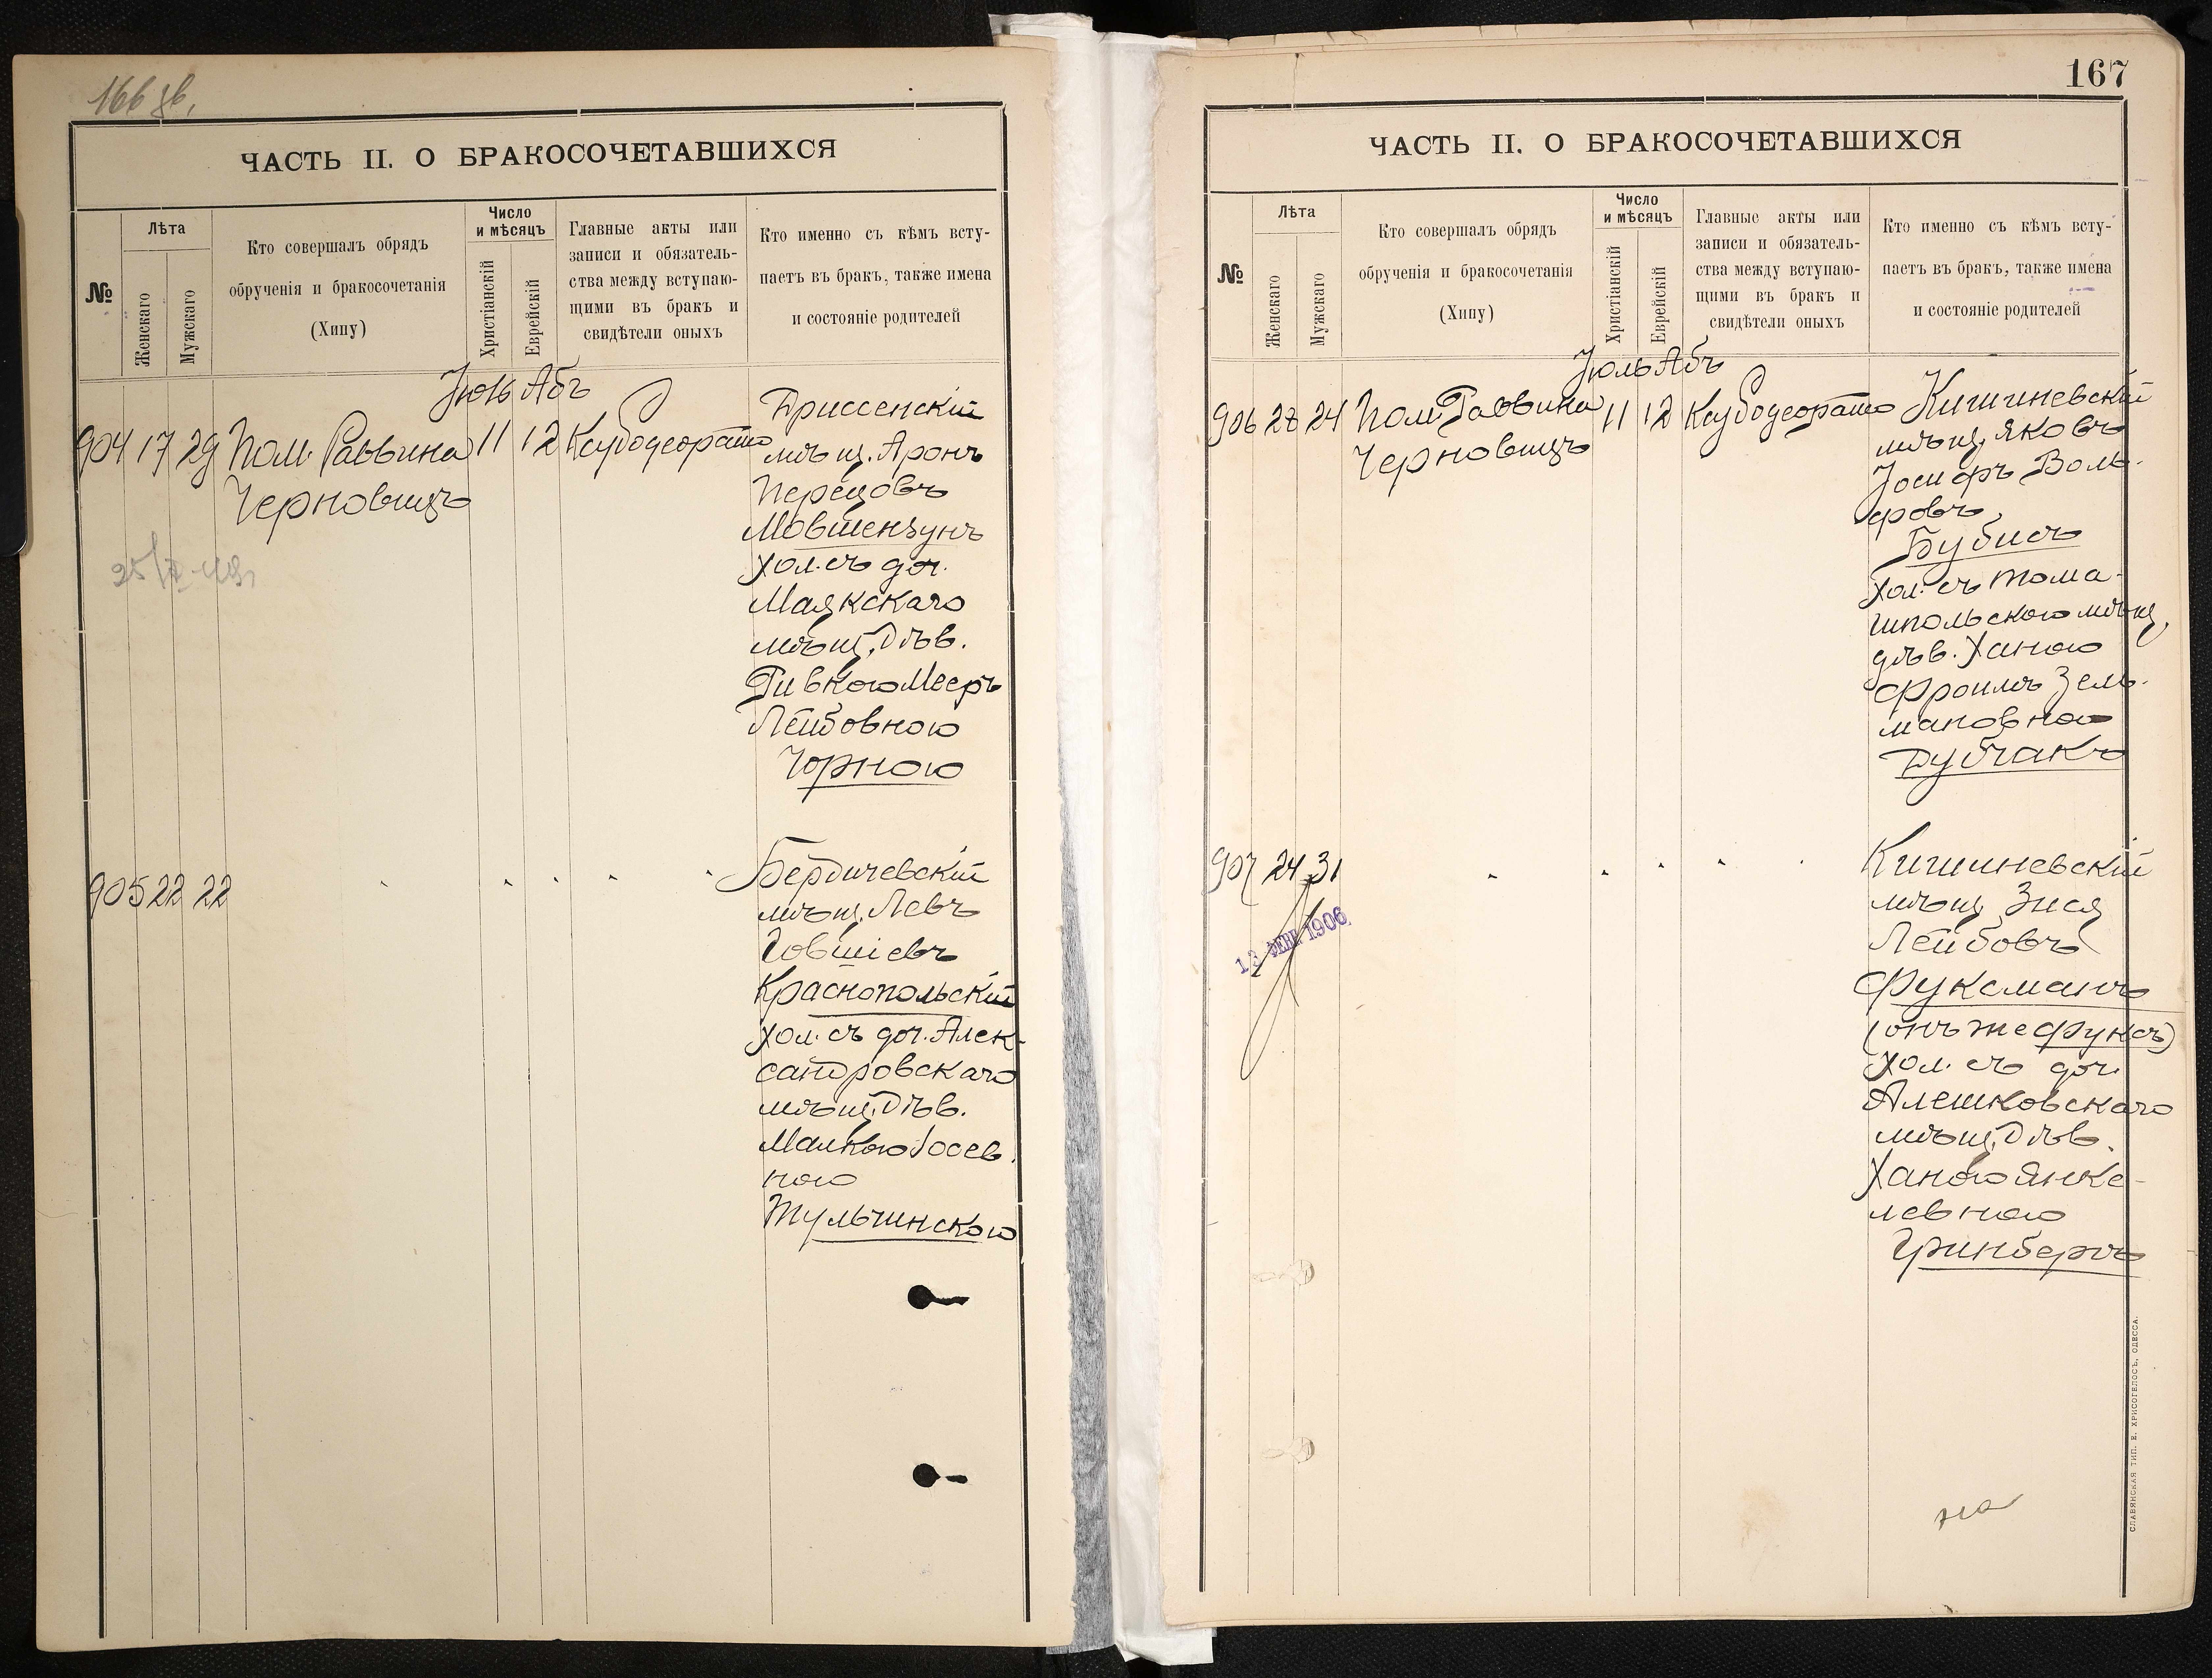 166 об.
ЧАСТЬ II. О БРАКОСОЧЕТАВШИХСЯ
№
Лѣта
Женскаго
Мужскаго
Кто совершалъ обрядъ
обрученія и бракосочетанія
(Хипу)
Число
и мѣсяцъ
Христіанскій
Еврейскій
Главные акты или
записи и обязатель-
ства между вступаю-
щими въ бракъ и
свидѣтели оныхъ
Кто именно съ кѣмъ всту-
паетъ въ бракъ, также имена
и состояніе родителей
Абъ
904 17 29 Пом. Раввина 11 12
Черновицъ
Дриссенскій
мѣщ. Аронъ
Перецовъ
Мовшензунъ
хол. съ доч.
Маякскаго
мѣщ. Дѣв.
Ривкою Мееръ
Лейбовною
Чорною
905 22 22
Бердичевскій
мѣщ. Левъ
Говшіевъ
Краснопольскій
хол. съ доч. Алек-
сандровскаго
мѣщ. Дѣв.
Малкою Іосев.
ною
Тульчинскою
167
ЧАСТЬ II. О БРАКОСОЧЕТАВШИХСЯ
№
Лѣта
Женскаго
Мужскаго
Кто совершалъ обрядъ
обрученія и бракосочетанія
(Хипу)
Число
и мѣсяцъ
Христіанскій
Еврейскій
Главные акты или
записи и обязатель-
ства между вступаю-
щими въ бракъ и
свидѣтели оныхъ
Кто именно съ кѣмъ всту-
паетъ въ бракъ, также имена
и состояніе родителей
Іюль Абъ
906 23 24 Пом. Раввина 11 12
Черновицъ
Кишиневскій
мѣщ. Яковъ
Іосифъ Воль-
фовъ
Бубисъ
хол. съ Тома-
шпольскою мѣщ.
дѣв. Ханою
Фроимъ Зель-
мановною
Дубчакъ
907 24 31
13 ФЕВ. 1906
Кишиневскій
мѣщ. Зися
Лейбовъ
Фуксманъ
(онъ же Фуксъ)
хол. съ доч.
Алешковскаго
мѣщ. Дѣв.
Ханою Янке-
левною
Гринбергъ
СЛАВЯНСКАЯ ТИП. Е. ХРИСОГЕЛОСЪ, ОДЕССА.